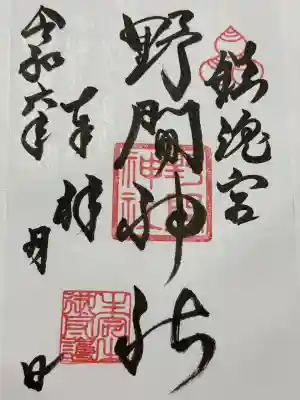 鎮魂宮
野間神社
野間神社
奉拝
令和六年　月　日